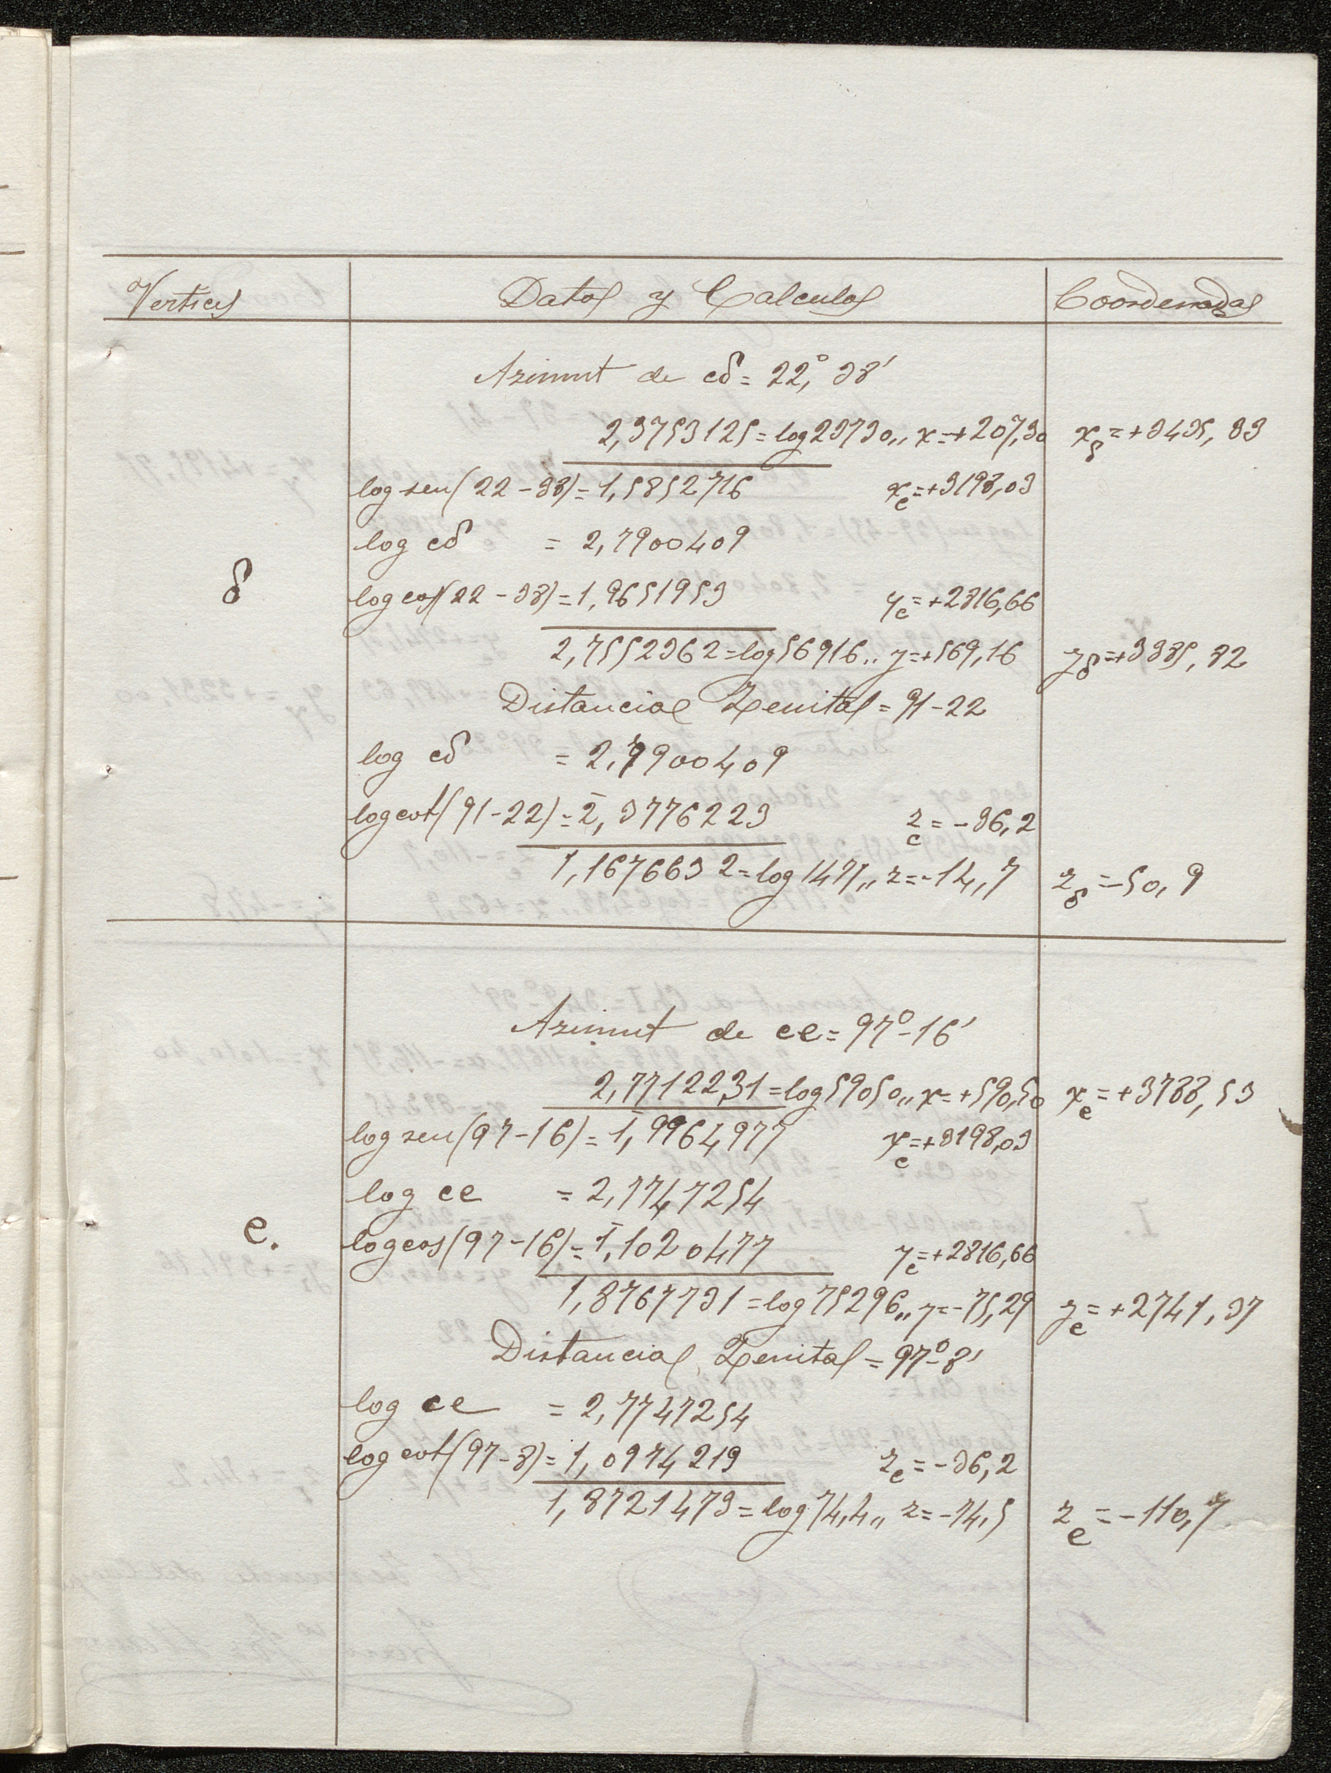 Vertices Datos y Calculos Coordenadas
Azimut de cδ = 22,° 38'
2,3753125 = log 23730,, x = +207,30 xδ = +3435,33
log sen (22-38) = 1,5852716 xc = +3198,03
log cδ = 2,7900409
δ
log cos (22-38) = 1,9651953 yc = +2816,66
2,7552362 = log 56916,, y = +569,16 yδ = +3385,82
Distancias Zenital = 91-22
log cδ = 2,7900409
log cot (91-22) = 2̄,3776223 zc = -36,2
1,1676632 = log 1471,, z = -14,7 zδ = -50,9
Azimut de ce = 97°-16'
2,7712231 = log 59050,, x = +590,50 xe = +3788,53
log sen (97-16) = 1̄,9964977 xc = +3198,03
log ce = 2,7747254
e.
log cos (97-16) = 1̄,1020477 yc = +2816,66
1,8767731 = log 75296,, y = -75,29 ye = +2741,37
Distancias Zenital = 97°-8'
log ce = 2,7747254
log cot (97-8) = 1,0974219 zc = -36,2
1,8721473 = log 74,4,, z = -74,5 ze = -110,7